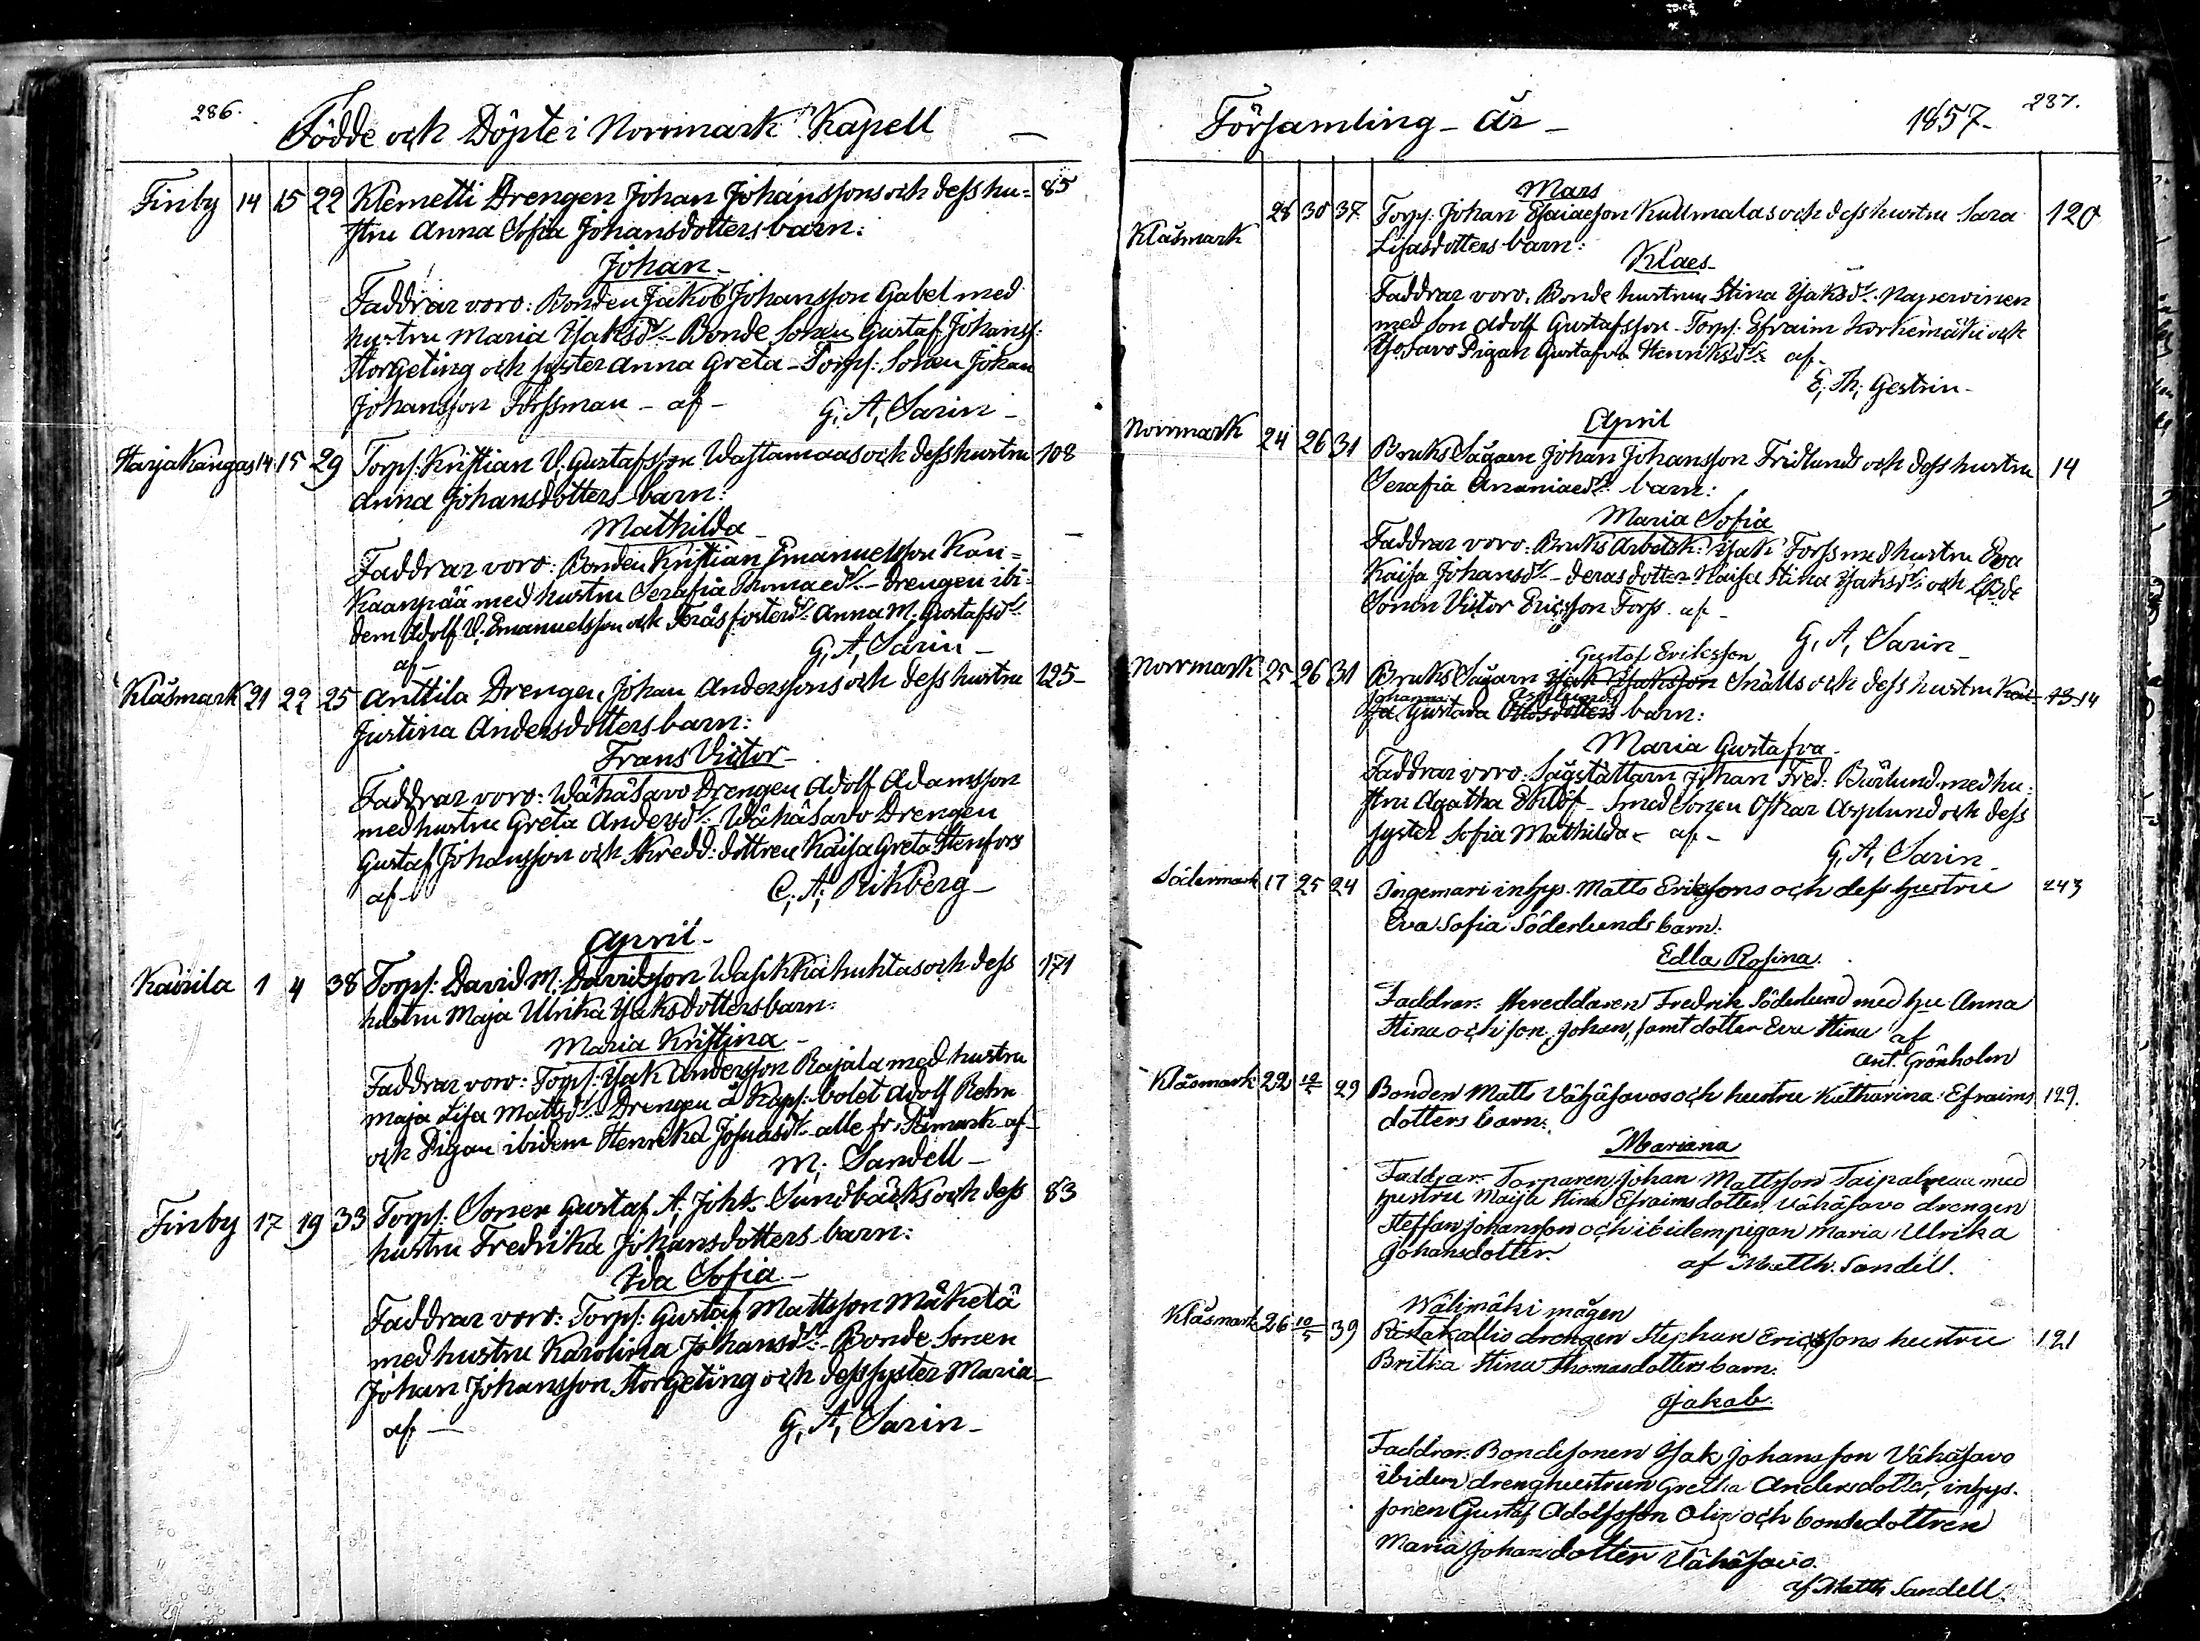 286.
Födde och Döpte i Norrmark Kapell
Finby 14 15 22 Klemetti Drengen Johan Johanssons och dess hu- 85
stru Anna Sofia Johansdotters barn:
Johan
Faddrar voro: Bonden Jakob Johansson Gabel med
hustru Maria Isaksdr. Bonde Sonen Gustaf Johanss:
Storgeting och syster Anna Greta - Torp: Sonen Johan
Johansson Forssman - af - G. A. Sarin -
Harjakangas 14 15 29 Torp: Kristian V. Gustafsson Wastamaas och dess hustru 108
Anna Johansdotters barn:
Mathilda
Faddrar voro: Bonden Kristian Emanuelsson Kan-
kaanpää med hustru Serafia Thomaedr. - Drengen ibi-
dem Adolf V. Emanuelsson och Anna M. Gustafsdr.
af - G. A. Sarin -
Klåsmark 21 22 25 Anttila Drengen Johan Anderssons och dess hustru 125
Justina Andersdotters barn:
Frans Victor
Faddrar voro: Wähäsavo Drengen Adolf Adamsson
med hustru Greta Andersdr. Wähäsavo Drengen
Gustaf Johansson och Skredd: dottren Kaisa Greta Stenfors
af - C. A. Rikberg -
April
Kairila 1 4 38 Torp: David M. Davidsson och dess 171
hustru Maja Ulrika Isaksdotters barn:
Maria Kristina
Faddrar voro: Torp: Isak Andersson Rajala med hustru
Maja Lisa Mattsdr. Drengen å Kapp: bolet Adolf Rehn
och Pigan ibidem Henrika Josuasdr. alle fr. af -
M. Sandell -
Finby 17 19 33 Torp: Sonen Gustaf A. Johs. Sundbäcks och dess 83
hustru Fredrika Johansdotters barn:
Ida Sofia
Faddrar voro: Torp: Gustaf Mattsson Mäketä
med hustru Karolina Johansdr. Bonde Sonen
Johan Johansson Storgeting och dess syster Maria
af - G. A. Sarin -
Församling - år - 1857 - 287.
Mars
Klåsmark 28 30 37 Torp: Johan Esaiaeson Kullmalas och dess hustru Sara 120
Lisasdotters barn:
Klaes
Faddrar voro: Bonde hustrun Stina Isaksdr.
med Son Adolf Gustafsson - Torp: Efraim och
Isosavo Pigan Gustafva Henriksdr. af -
E. Th. Gestrin -
April
Norrmark 24 26 31 Bruks Sågaren Johan Johansson Fridlunds och dess hustru 14
Serafia Ananiaedr. barn:
Maria Sofia
Faddrar voro: Bruks Arbetsk: Isak Forss med hustru Eva
Kaisa Johansdr. - deras dotter Kaisa Stina Isaksdr. och
Sonen Victor Ericsson Forss - af -
G. A. Sarin -
Gustaf Ericksson
Norrmark 25 26 31 Bruks Sågarn Isak Isaksson Snälls och dess hustru Kai- 13 14
Johanna Asplunds
sa Gustava Ottosdotters barn:
Maria Gustafva
Faddrar voro: Sågställarn Johan Fred: Burlund med hu-
stru Agatha Eklöf - Smed Sonen Oskar Asplund och dess
syster Sofia Mathilda - af -
G. A. Sarin -
Södermark 17 25 24 Ingemari inhys. Matts Ericsons och dess hustru 243
Eva Sofia Söderlunds barn.
Edla Rosina.
Faddrar: Skreddaren Fredrik Söderlund med hu Anna
Stina och son Johan, samt dotter Eva Stina af
Ant. Grönholm
Klåsmark 22 10/5 29 Bonden Matts Vähäsavos och hustru Katharina Efraims 129.
dotters barn:
Mariana
Faddrar: Torparen Johan Mattsson Taipalus med
hustru Maija Stina Efraimsdotter, Vähäsavo drengen
Steffan Johansson och ibidem pigan Maria Ulrika
Johansdotter. af Matth. Sandell.
Wälimäki mågen
Klåsmark 26 10/5 39 Ristakallio drengen Stephan Ericssons hustru 121
Britha Stina Thomasdotters barn.
Jakob.
Faddrar: Bondesonen Isak Johansson Vähäsavo
ibidem dränghustrun Gretha Andersdotter, inhys.
sonen Gustaf Adolfsson Olin och bondedottren
Maria Johansdotter Vähäsavo.
af Matth. Sandell.